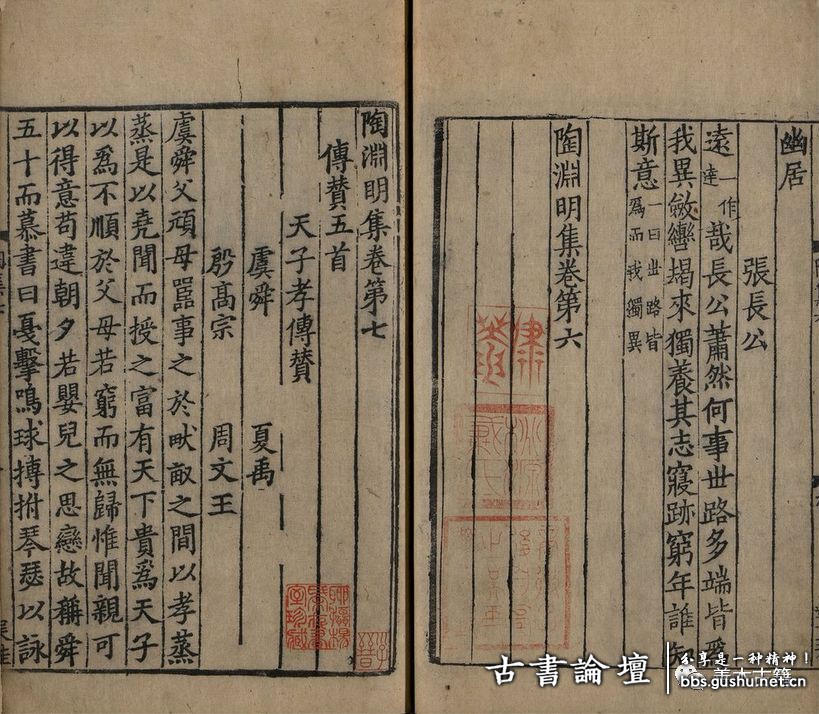 幽居
張長公
遠一作達哉長公蕭然何事世路多端皆爲
我異斂轡朅來獨養其志寢跡窮年誰知
斯意一曰世路皆爲而我獨異
陶淵明集卷第六
陶淵明集卷第七
傳贊五首
天子孝傳贊
虞舜 夏禹
殷高宗 周文王
虞舜父頑母嚚事之於畎畝之間以孝蒸
蒸是以堯聞而授之富有天下貴爲天子
以爲不順於父母若窮而無歸惟聞親可
以得意苟違朝夕若嬰兒之思戀故稱舜
五十而慕書曰戛擊鳴球搏拊琴瑟以詠
古書論壇
分享是一种精神！
bbs.gushu.net.cn